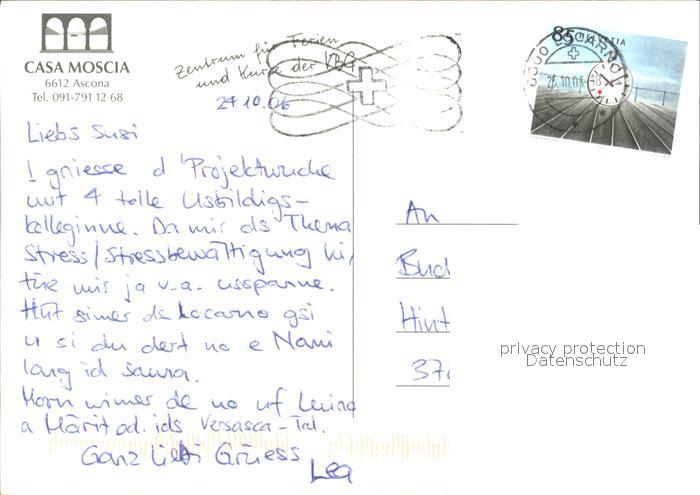 CASA MOSCIA
6612 Ascona
Tel. 091-791 12 68
Zentrum für Ferien
und Kurse der VBG
24.10.06
85 HELVETIA
6600 LOCARNO 1
Liebs Susi
I gniesse d Projektwuche
mit 4 tolle Usbildigs-
kolleginne. Da mir ds Thema
Stress/Stressbewältigung hi,
tüe mir ja v.a. usspanne.
Hüt simer ds Locarno gsi
u si du dert no e Nami
lang id sauna.
Morn wimer de no uf Luino
a Märit od. ids Versasca-Tal.
Ganz liebi Grüess
Lea
An
Bud
Hint
37
privacy protection
Datenschutz